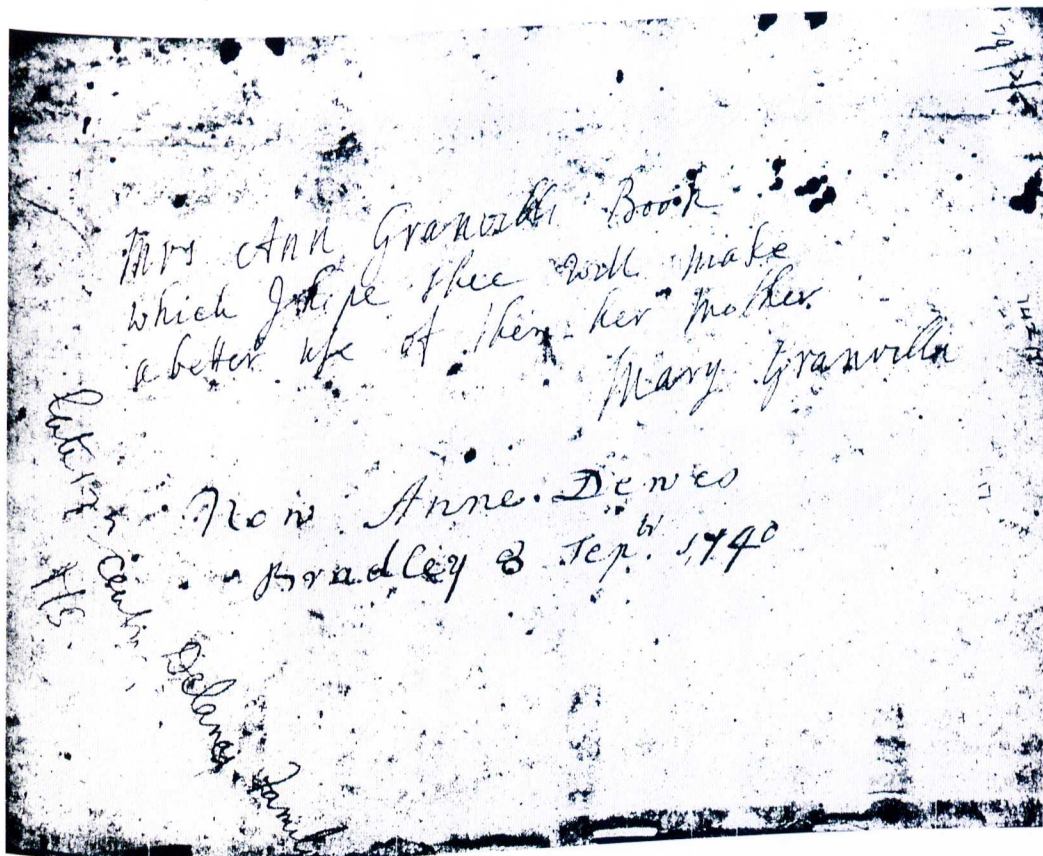 Mrs Ann Granvills Book
which I hope shee will make
a better use of then her mother
Mary Granvilla
Now Anne Dewes
Bradley 8 Sepbr. 1740
late 17th Cent.
Delaney Famil